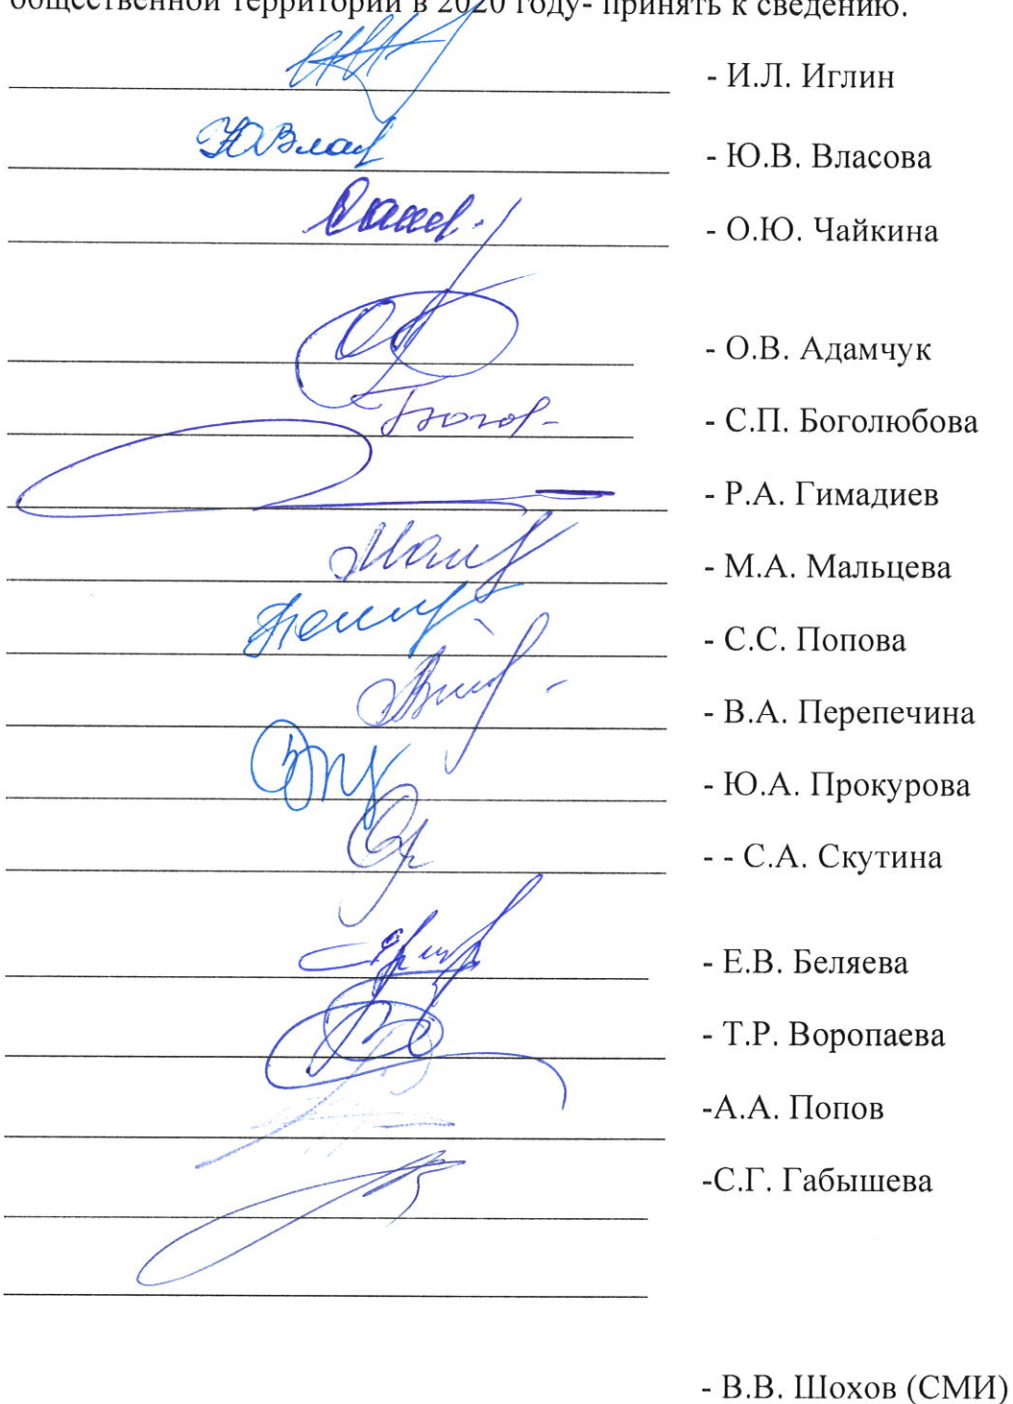 общественной территории в 2020 году- принять к сведению.
- И.Л. Иглин
ЮВлас
- Ю.В. Власова
- О.Ю. Чайкина
- О.В. Адамчук
- С.П. Боголюбова
- Р.А. Гимадиев
- М.А. Мальцева
- С.С. Попова
- В.А. Перепечина
- Ю.А. Прокурова
- - С.А. Скутина
- Е.В. Беляева
- Т.Р. Воропаева
-А.А. Попов
-С.Г. Габышева
- В.В. Шохов (СМИ)